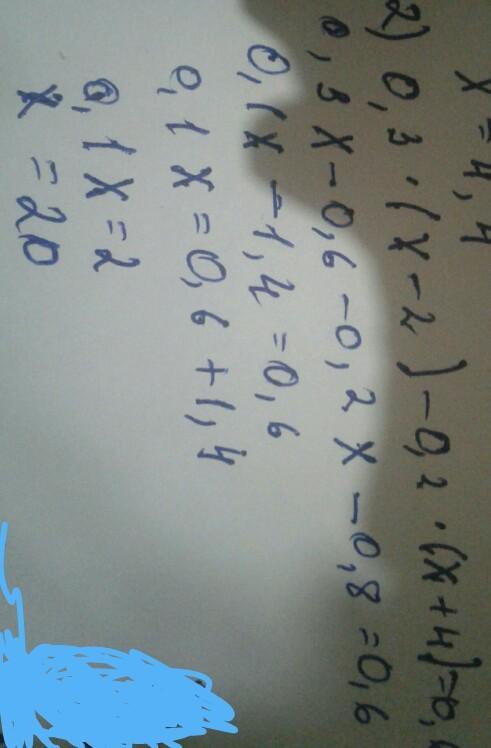 x = 4,4
2) 0,3 · (x - 2) - 0,2 · (x + 4) = 0,
0,3x - 0,6 - 0,2x - 0,8 = 0,6
0,1x - 1,4 = 0,6
0,1x = 0,6 + 1,4
0,1x = 2
x = 20